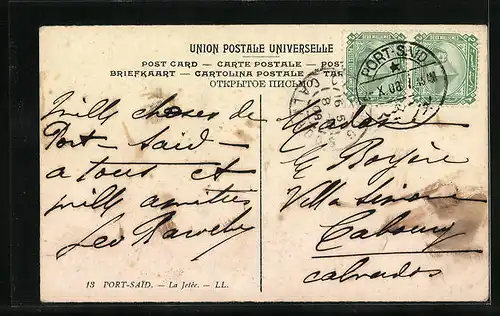 UNION POSTALE UNIVERSELLE
POST CARD — CARTE POSTALE — POST
BRIEFKAART — CARTOLINA POSTALE — TAR
ОТКРЫТОЕ ПИСЬМО
PORT-SAID
Mille choses de
Port-Said
a tous et
mille amitiés
Leo
Madame
Boyère
Villa
Cabourg
Calvados
13 PORT-SAÏD. — La Jetée. — LL.